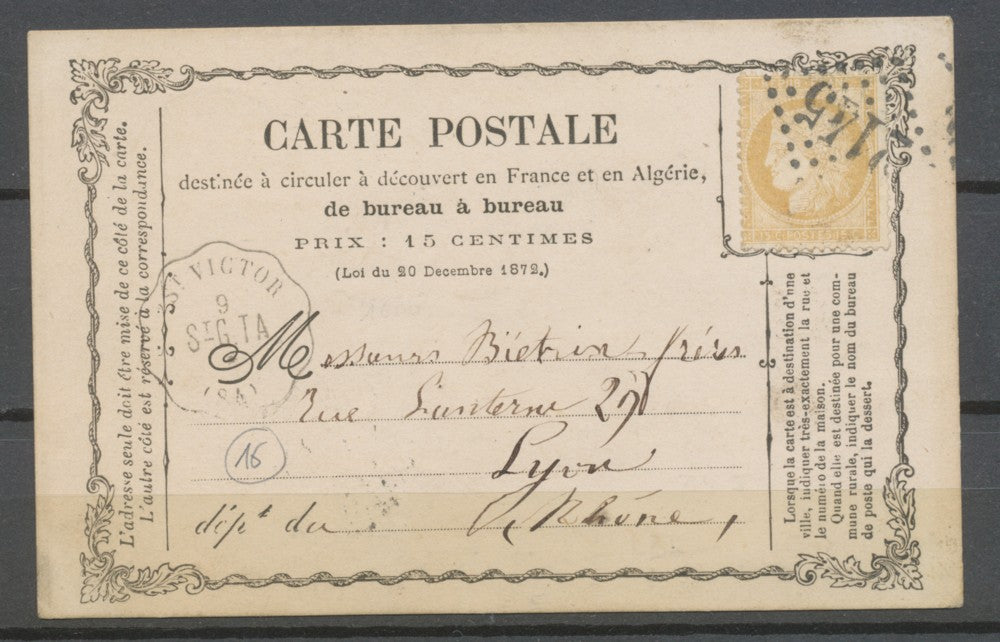 CARTE POSTALE
destinée à circuler à découvert en France et en Algérie,
de bureau à bureau
PRIX : 15 CENTIMES
(Loi du 20 Decembre 1872.)
L'adresse seule doit être mise de ce côté de la carte.
L'autre côté est réservé à la correspondance.
ST VICTOR
9
(84)
2145
POSTES
Messieurs frères
Rue Lanterne
Lyon
dépt du Rhône,
16
Lorsque la carte est à destination d'une
ville, indiquer très-exactement la rue et
le numéro de la maison.
Quand elle est destinée pour une com-
mune rurale, indiquer le nom du bureau
de poste qui la dessert.